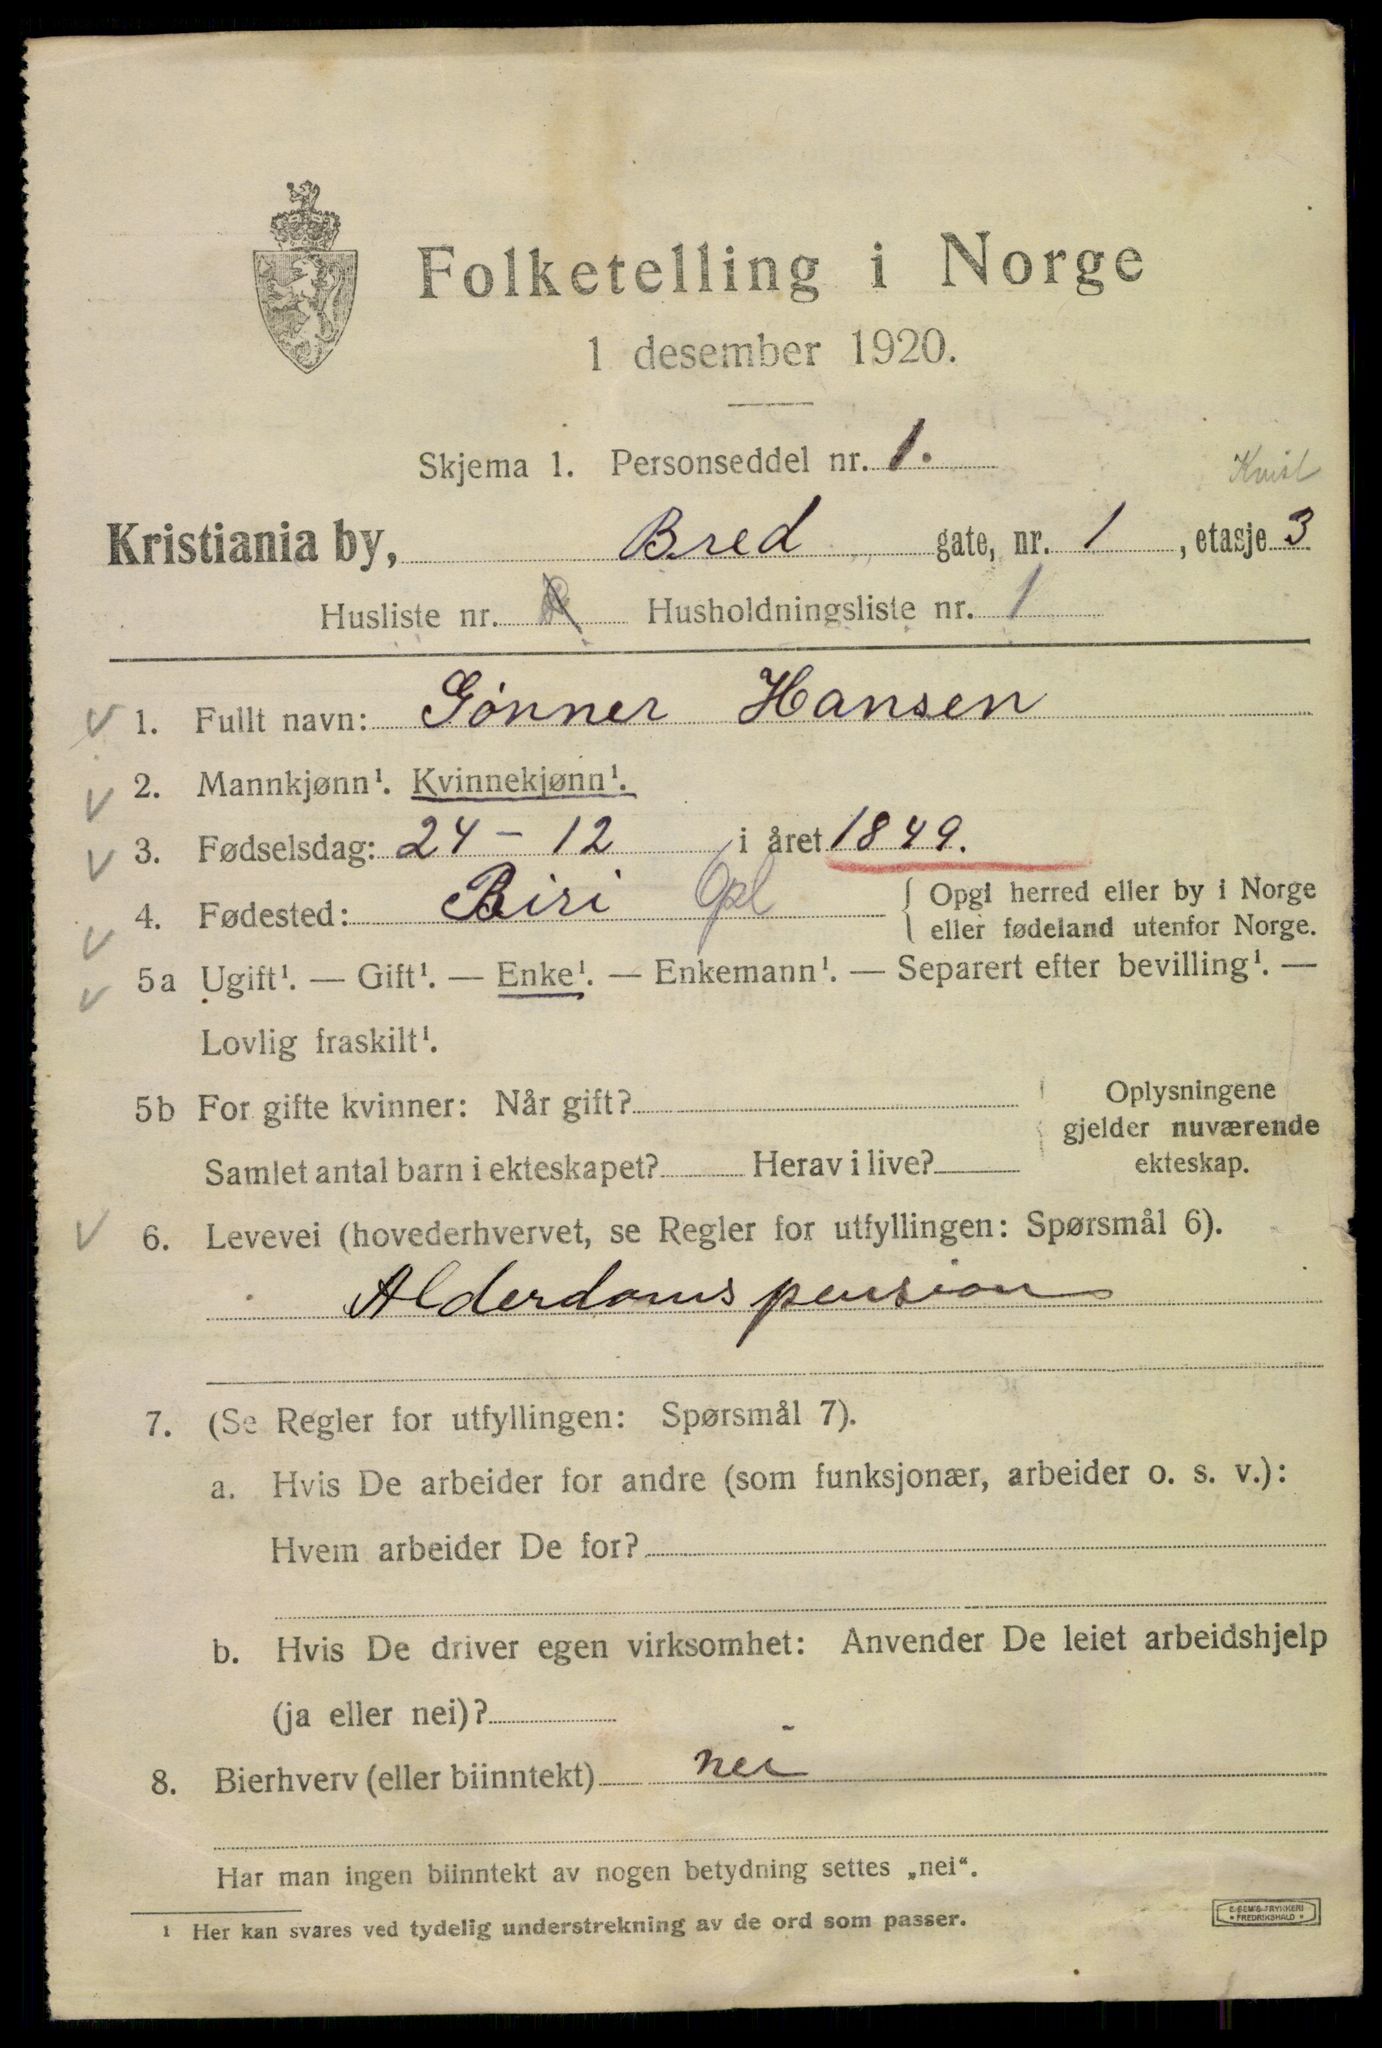 Folketelling i Norge
1 desember 1920.
Skjema 1. Personseddel nr. 1.
Kvist
Kristiania by, Bred gate, nr. 1, etasje 3
Husliste nr. Husholdningsliste nr. 1
1. Fullt navn: Gönner Hansen
2. Mannkjønn¹. Kvinnekjønn¹.
3. Fødselsdag: 24 - 12 i året 1849.
4. Fødested: Biri Opl { Opgi herred eller by i Norge
eller fødeland utenfor Norge.
5a Ugift¹. — Gift¹. — Enke¹. — Enkemann¹. — Separert efter bevilling¹. —
Lovlig fraskilt¹.
5b For gifte kvinner: Når gift?
Samlet antal barn i ekteskapet? Herav i live?
Oplysningene
gjelder nuværende
ekteskap.
6. Levevei (hovederhvervet, se Regler for utfyllingen: Spørsmål 6).
Alderdoms pension
7. (Se Regler for utfyllingen: Spørsmål 7).
a. Hvis De arbeider for andre (som funksjonær, arbeider o. s. v.):
Hvem arbeider De for?
b. Hvis De driver egen virksomhet: Anvender De leiet arbeidshjelp
(ja eller nei)?
8. Bierhverv (eller biinntekt) nei
Har man ingen biinntekt av nogen betydning settes „nei“.
¹ Her kan svares ved tydelig understrekning av de ord som passer.
E. SEM'S TRYKKERI
FREDRIKSHALD